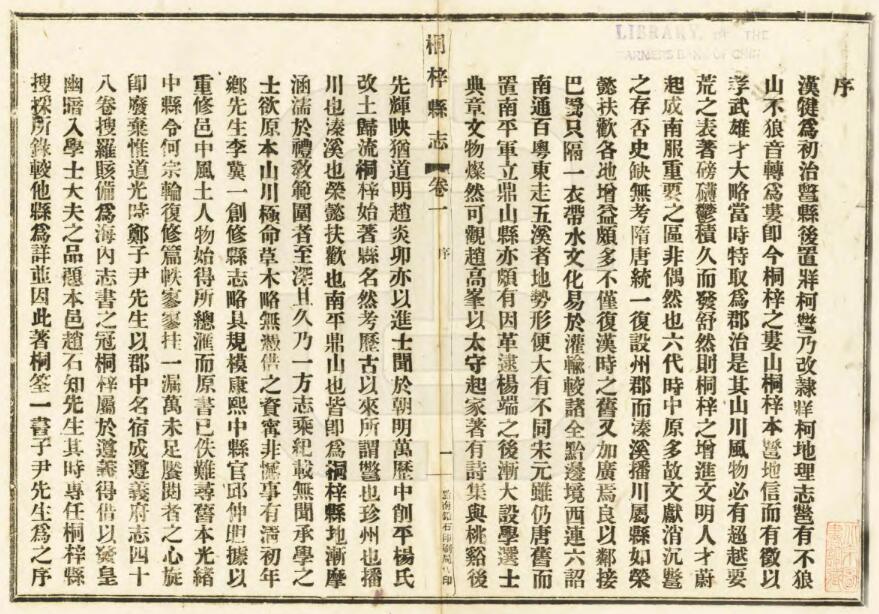 序
漢犍為初治鄨縣後置牂柯鄨乃改隸牂柯地理志鄨有不狼
山不狼音轉為婁卽今桐梓之婁山桐梓本鄨地信而有徵以
孝武雄才大略當時特取為郡治是其山川風物必有超越要
荒之表著磅礴鬱積久而發舒然則桐梓之增進文明人才蔚
起成南服重要之區非偶然也六代時中原多故文獻消沉鄨
之存否史缺無考隋唐統一復設州郡而溱溪播川屬縣如榮
懿扶歡各地增益頗多不僅復漢時之舊又加廣焉良以鄰接
巴蜀只隔一衣帶水文化易於灌輸較諸全黔邊境西連六詔
南通百粵東走五溪者地勢形便大有不同宋元雖仍唐舊而
置南平軍立鼎山縣亦頗有因革逮楊端之後漸大設學選士
典章文物燦然可觀趙高峯以太守起家著有詩集與桃谿後
桐梓縣志 卷一 序 一
先輝映猶道明趙炎卯亦以進士聞於朝明萬歷中削平楊氏
改土歸流桐梓始著縣名然考歷古以來所謂鄨也珍州也播
川也溱溪也榮懿扶歡也南平鼎山也皆卽為桐梓縣地漸摩
涵濡於禮敎範圍者至深且久乃一方志乘紀載無聞承學之
士欲原本山川極命草木略無憑借之資甯非憾事有清初年
鄉先生李冀一創修縣志略具規模康熙中縣官邱仲㫤據以
重修邑中風土人物始得所總滙而原書已佚難尋舊本光緒
中縣令何宗輪復修篇軼寥寥挂一漏萬未足饜閱者之心旋
卽廢棄惟道光時鄭子尹先生以郡中名宿成遵義府志四十
八卷搜羅賅備為海內志書之冠桐梓屬於遵義得借以發皇
幽曆入學士大夫之品題本邑趙石知先生其時專任桐梓縣
搜採所錄較他縣為詳並因此著桐筌一書子尹先生為之序
LIBRARY OF THE
FARMERS BANK OF CHINA